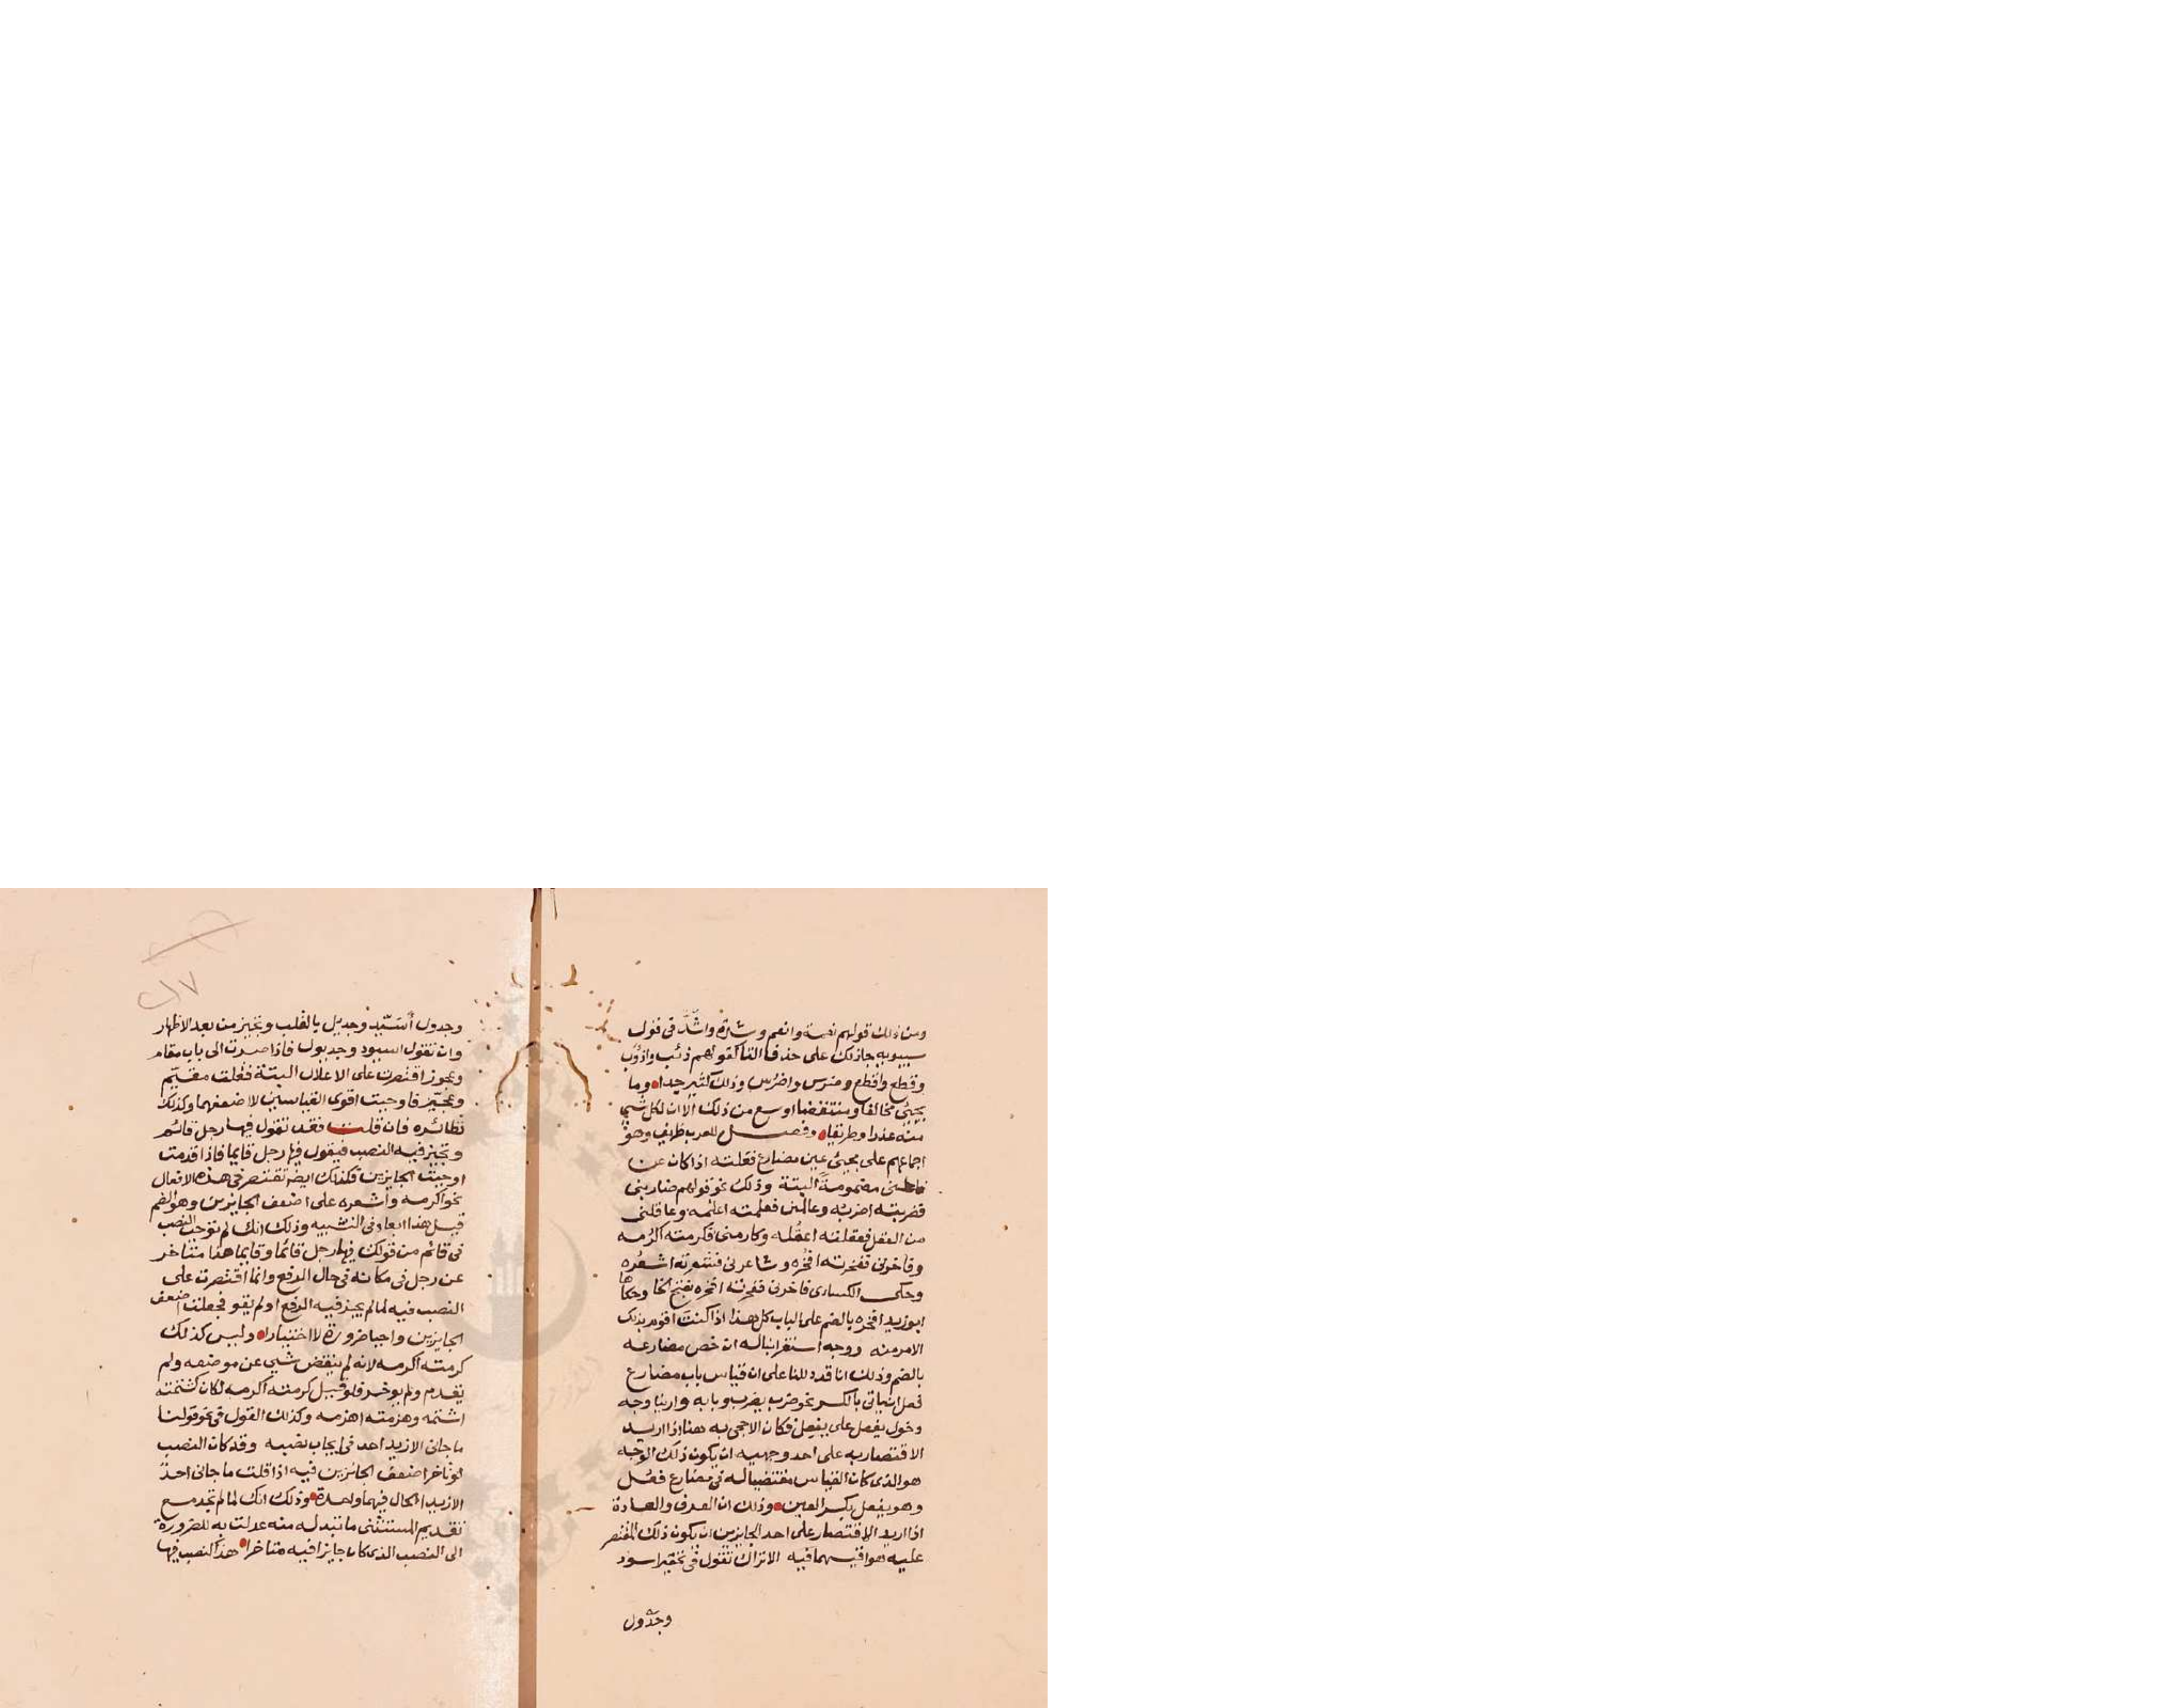 ومن ذلك قولهم نعمة وانعم وشدة واشد في قول
سيبويه جاذلك على حذف التا كقولهم ذئب واذؤب
وقطع واقطع وضرس واضرس وذلك كثير جدا وما
يجيئ مخالفا ومنتقضا اوسع من ذلك الا ان لكل شي
منه عذرا وطريقا وفصل للعرب ظريف وهو
اجماعهم على مجيئ عين مضارع فعلته اذا كان عن
فاعلنى مضمومة البتة وذلك نحو قولهم ضاربنى
فضربته اضربه وعالمنى فعلمته اعلمه وعاقلنى
من العقل فعقلته اعقله وكارمنى فكرمته اكرمه
وفاخرنى ففخرته افخره وشاعرنى فشعرته اشعره
وحكى الكسائى فاخرنى ففخرته افخره بفتح الخا وحكاها
ابوزيد افخره بالضم على الباب كل هذا اذا كنت اقوم بذلك
الامر منه ووجه استغرابنا له ان خص مضارعه
بالضم وذلك انا قد دللنا على ان قياس باب مضارع
فعل ان ياتى بالكسر نحو ضرب يضرب وبابه وارينا وجه
دخول يفعل على يفعل فكان الاحجى به هنا اذا اريد
الاقتصار به على احد وجهيه ان يكون ذلك الوجه
هو الذى كان القياس مقتضيا له في مضارع فعل
وهو يفعل بكسر العين وذلك ان العرف والعادة
اذا اريد الاقتصار على احد الجايزين ان يكون ذلك المقتصر
عليه هو اقيسهما فيه الا تراك تقول في تحقير اسود
وجدول
وجدول أسيد وجديل بالقلب وتجيز من بعد الاظهار
وان تقول اسيود وجديول فاذا صرت الى باب مقام
وعجوز اقتصرت على الاعلال البتة فقلت مقيم
وعجيز فاوجبت اقوى القياسين لا اضعفهما وكذلك
نظائره فان قلت فقد تقول فيها رجل قائم
وتجيز فيه النصب فتقول فيها رجل قايما فاذا قدمت
اوجبت الجايزين فكذلك ايضا تقتصر في هذه الافعال
نحو اكرمه واشعره على اضعف الجايزين وهو الضم
قيل هذا ابعاد فى التشبيه وذلك انك لم توجب النصب
فى قائم من قولك فيها رجل قائما وقايما هذا متاخر
عن رجل فى مكانه فى حال الرفع وانما اقتصرت على
النصب فيه لما لم يجز فيه الرفع او لم يقو فجعلت اضعف
الجايزين واجبا ضرورة لا اختيارا وليس كذلك
كرمته اكرمه لانه لم ينقض شي عن موضعه ولم
يقدم ولم يوخر فلو قيل كرمته اكرمه لكان كشتمته
اشتمه وهزمته اهزمه وكذلك القول فى نحو قولنا
ما جانى الا زيدا احد فى ايجاب نصبه وقد كان النصب
لو تاخر اضعف الجائزين فيه اذا قلت ما جانى احد
الا زيدا الحال فيهما واحدة وذلك انك لما لم تجد مع
تقديم المستثنى ما تبدله منه عدلت به للضرورة
الى النصب الذى كان جايزا فيه متاخرا هذا كنصب فيها